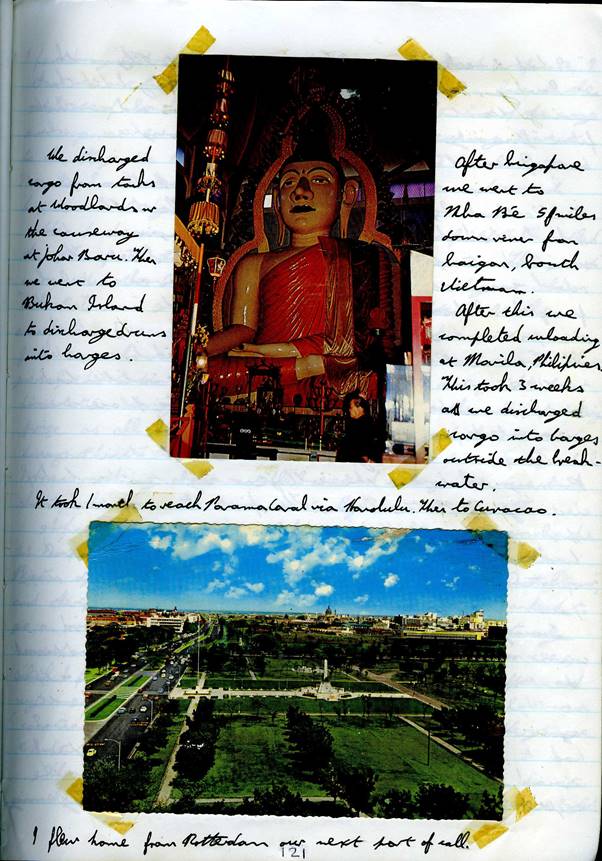 We discharged
cargo from tanks
at Woodlands or
the causeway
at Johar Baru. Then
we went to
Bukan Island
to discharge drums
into barges.
After Singapore
we went to
Nha Bè 5 miles
down river from
Saigon, South
Vietnam.
After this we
completed unloading
at Manila, Philipines
This took 3 weeks
as we discharged
cargo into barges
outside the break-
water.
It took 1 month to reach Panama Canal via Honolulu. Then to Curacao.
I flew home from Rotterdam our next port of call.
121